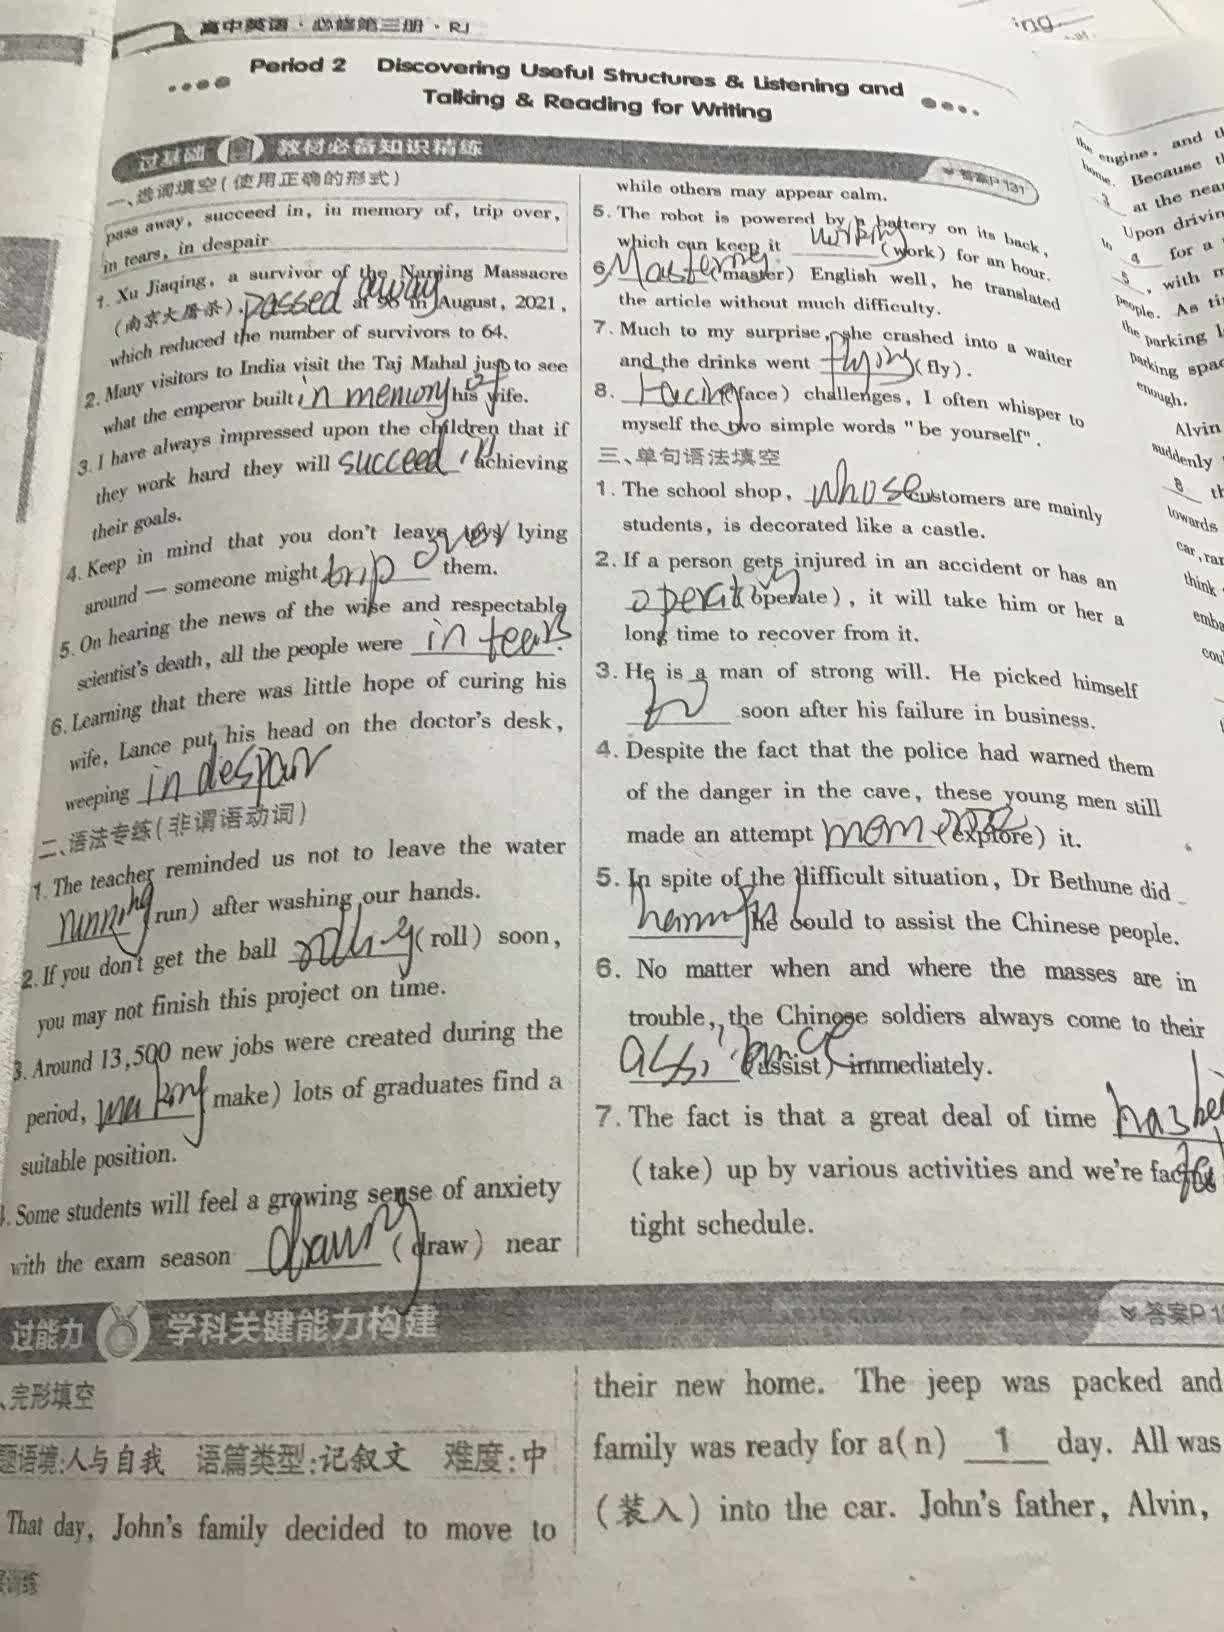 高中英语·必修第三册·RJ
ing
Period 2 Discovering Useful Structures & Listening and
Talking & Reading for Writing
过基础 教材必备知识精练
答案P 131
一、选词填空(使用正确的形式)
pass away, succeed in, in memory of, trip over,
in tears, in despair
1. Xu Jiaqing, a survivor of the Nanjing Massacre
(南京大屠杀), passed away at 96 in August, 2021,
which reduced the number of survivors to 64.
2. Many visitors to India visit the Taj Mahal just to see
what the emperor built in memory of his wife.
3. I have always impressed upon the children that if
they work hard they will succeed in achieving
their goals.
4. Keep in mind that you don't leave toys lying
around — someone might trip over them.
5. On hearing the news of the wise and respectable
scientist's death, all the people were in tears.
6. Learning that there was little hope of curing his
wife, Lance put his head on the doctor's desk,
weeping in despair
二、语法专练(非谓语动词)
1. The teacher reminded us not to leave the water
running (run) after washing our hands.
2. If you don't get the ball rolling (roll) soon,
you may not finish this project on time.
3. Around 13,500 new jobs were created during the
period, making (make) lots of graduates find a
suitable position.
4. Some students will feel a growing sense of anxiety
with the exam season drawing (draw) near
while others may appear calm.
5. The robot is powered by a battery on its back,
which can keep it working (work) for an hour.
6. Mastering (master) English well, he translated
the article without much difficulty.
7. Much to my surprise, she crashed into a waiter
and the drinks went flying (fly).
8. Facing (face) challenges, I often whisper to
myself the two simple words "be yourself".
三、单句语法填空
1. The school shop, whose customers are mainly
students, is decorated like a castle.
2. If a person gets injured in an accident or has an
(operate), it will take him or her a
long time to recover from it.
3. He is a man of strong will. He picked himself
soon after his failure in business.
4. Despite the fact that the police had warned them
of the danger in the cave, these young men still
made an attempt (explore) it.
5. In spite of the difficult situation, Dr Bethune did
he could to assist the Chinese people.
6. No matter when and where the masses are in
trouble, the Chinese soldiers always come to their
assistance (assist) immediately.
7. The fact is that a great deal of time has
(take) up by various activities and we're
tight schedule.
过能力 学科关键能力构建
答案P 1
、完形填空
题语境:人与自我 语篇类型:记叙文 难度:中
That day, John's family decided to move to
their new home. The jeep was packed and
family was ready for a(n) 1 day. All was
(装入) into the car. John's father, Alvin,
训练
the engine, and
home. Because
3 at the near
Upon drivin
to 4 for a
5, with m
people. As ti
the parking
parking spac
enough.
Alvin
suddenly
8 th
towards
car, ran
think
emba
cou